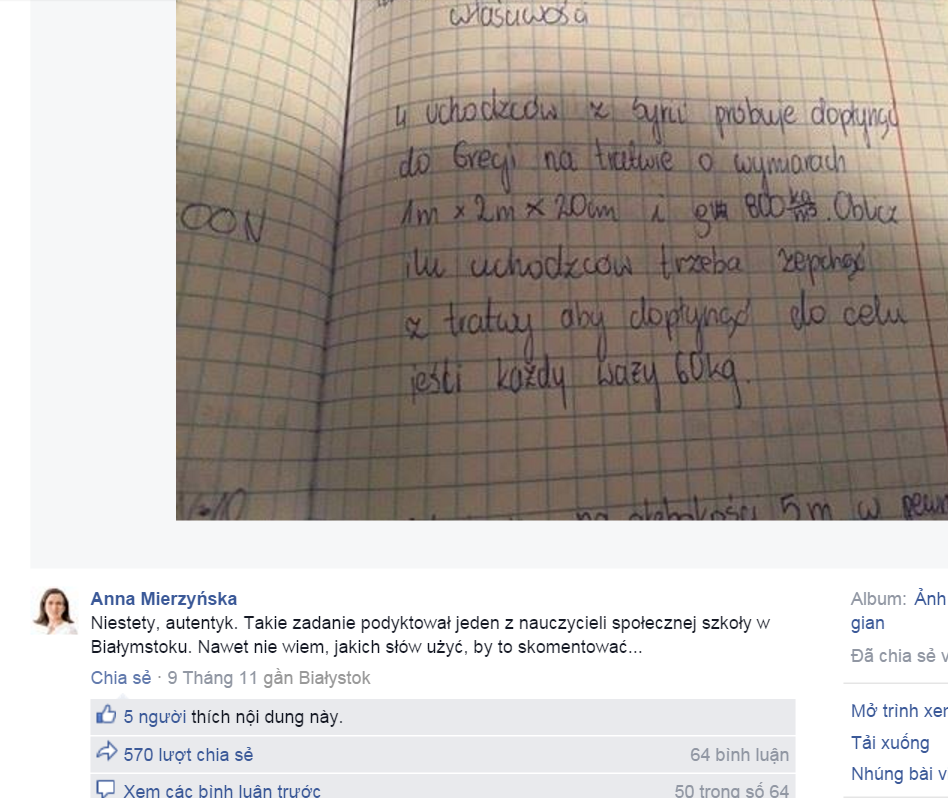 właściwości
4 uchodźców z Syrii próbuje dopłynąć
do Grecji na tratwie o wymiarach
1m x 2m x 20cm i g 800 kg/m³. Oblicz
OON
ilu uchodźców trzeba zepchnąć
z tratwy aby dopłynąć do celu
jeśli każdy waży 60kg.
na głębokości 5m w
Anna Mierzyńska
Niestety, autentyk. Takie zadanie podyktował jeden z nauczycieli społecznej szkoły w
Białymstoku. Nawet nie wiem, jakich słów użyć, by to skomentować...
Chia sẻ · 9 Tháng 11 gần Białystok
5 người thích nội dung này.
570 lượt chia sẻ 64 bình luận
Xem các bình luận trước 50 trong số 64
Album: Ảnh
gian
Đã chia sẻ v
Mở trình xem
Tải xuống
Nhúng bài v